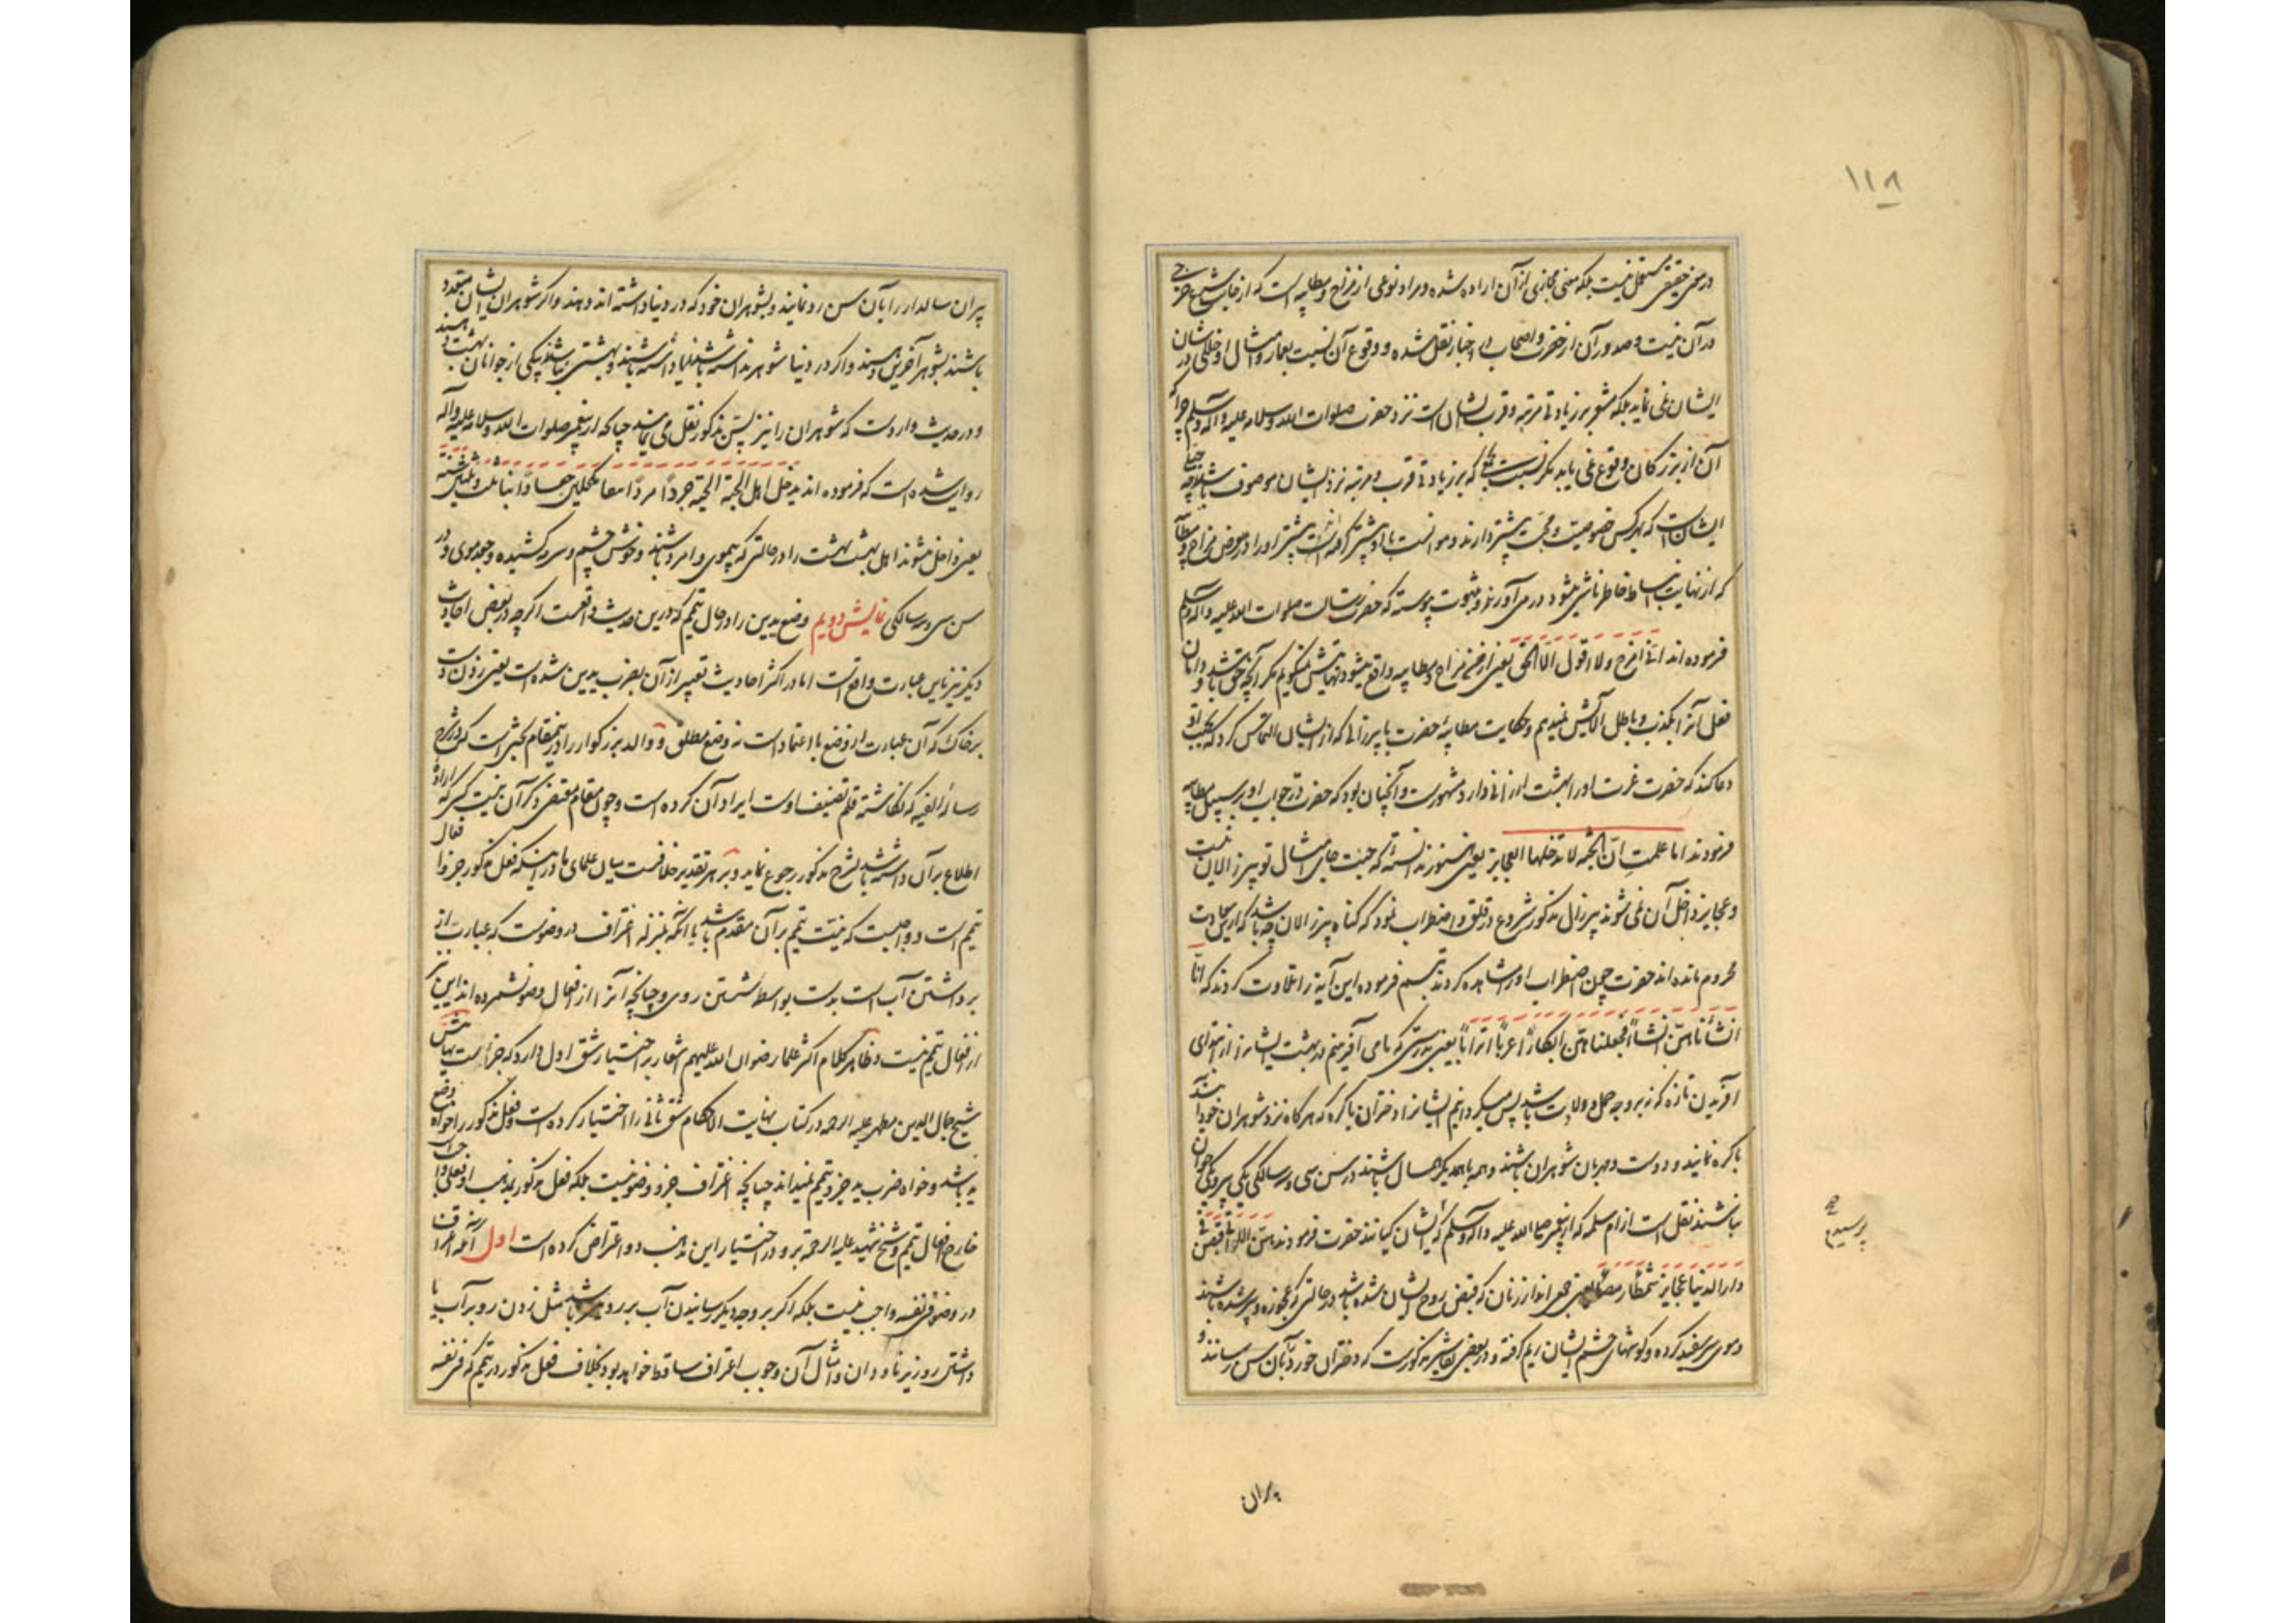 ۱۱۸
در معنی حقیقی مستعمل نیست بلکه معنی مجازی از آن اراده شده و مراد نوعی از مزاح و مطایبه است که از جانب شرع حرجی
در آن نیست و صدور آن از حضرت و اصحاب در اخبار نقل شده و وقوع آن نسبت بعمار و امثال او خللی در شان
ایشان نمی نماید بلکه مشعر بر زیادتی مرتبه و قرب ایشان است نزد حضرت صلوات الله و سلامه علیه و آله و سلم چرا که
آن از بزرگان وقوع نمی یابد مگر نسبت بجمعی که بزیادتی قرب و مرتبه نزد ایشان موصوف باشند چه
ایشانست که بهر کس خصوصیت و محبت بیشتر دارند و موانست با او بیشتر گرفته است بیشتر او را در معرض مزاح و مطایبه
که از نهایت نبساط خاطر ناشی میشود در می آورند و بثبوت پیوسته که حضرت رسالت صلوات الله علیه و آله و سلم
فرموده اند انی امزح ولا اقول الا الحق یعنی از من مزاح و مطایبه واقع میشود نهایتش نمیگویم مگر آنچه حق باشد و دامان
فعل آنرا بکذب و باطل آلایش نمیدهم و حکایت مطایبه حضرت با پیرزنی که از ایشان التماس کرد که بجهت او
دعا کنند که حضرت عزت او را بهشت ارزانی دارد مشهورست و آنچنان بود که حضرت در جواب او بر سبیل مطایبه
فرمودند اما علمت ان الجنة لا تدخلها العجایز یعنی هنوز ندانسته که جنت جای امثال تو پیرزالان نیست
و عجایز داخل آن نمی شوند پیرزال مذکور شروع در قلق و اضطراب نمود که گناه پیرزالان چه باشد که ازین سعادت
محروم مانده اند حضرت چون اضطراب او را مشاهده کردند تبسم فرموده این آیه را تلاوت کردند که انا
انشأناهن انشاءً فجعلناهن ابکاراً عرباً اتراباً یعنی بدرستی که ما می آفرینیم در بهشت ایشانرا از ابتدای
آفریدن تازه که نه بر وجه حمل و ولادت باشد پس میگردانیم ایشانرا دختران باکره که هرگاه نزد شوهران خود آیند
باکره نمایند و دوست و مهربان شوهران باشند و همه با همدیگر همسال باشند در سن سی و سه سالگی یکی پیر و یکی جوان
نباشند نقل است از ام سلمه که از پیغمبر صلی الله علیه و آله و سلم که ایشان کیانند حضرت فرمودند هن اللواتی قبضن
پرسیدم صح
دار الدنیا عجایز شمطا رمصا یعنی جمعی اند از زنان که قبض روح ایشان شده باشد در حالتی که عجوزه و پیر شده باشند
و موی سر سفید کرده و گوشهای چشم ایشان ریم گرفته و در بعضی تفاسیر مذکورست که دختران خورد را بآن سن رسانند و
پیران
پیران سالدار را بآن سن رد نمایند و بشوهران خود که در دنیا داشته اند دهند و اگر شوهران ایشان متعدد
باشند بشوهر آخرین دهند و اگر در دنیا شوهر نداشته باشند یا داشته باشند و بهشتی نباشند بیکی از جوانان بهشت دهند
و در حدیث واردست که شوهران را نیز بسن مذکور نقل می نمایند چنانکه از پیغمبر صلوات الله و سلامه علیه و آله
روایت شده است که فرموده اند یدخل اهل الجنة الجنة جرداً مرداً مکحلین جعاداً ابناء ثلث و ثلثین سنة
یعنی داخل میشوند اهل بهشت بهشت را در حالتی که بیموی و امرد باشند و خوش چشم و سرمه کشیده و جعد موی و در
سن سی و سه سالگی نمایش دویم وضع یدین را در حال تیمم که درین حدیث واقعست اگرچه در بعض احادیث
دیگر نیز باین عبارت واقع است اما در اکثر احادیث تعبیر از آن بضرب یدین شده است یعنی زدن دست
بر خاک که آن عبارت از وضع با اعتماد است نه وضع مطلق و والد بزرگوار را درین مقام بحثی است که در شرح
رساله الفیه که نگاشته قلم تصنیف اوست ایراد آن کرده است و چون مقام مقتضی ذکر آن نیست کسی که اراده
اطلاع بر آن داشته باشد بشرح مذکور رجوع نماید و بر هر تقدیر خلافست میان علمای ما در اینکه فعل مذکور جزو افعال
تیمم است و واجبست که نیت تیمم بر آن مقدم باشد یا آنکه بمنزله اغتراف در وضوست که عبارت از
برداشتن آب است بدست بواسطه شستن روی و چنانچه آنرا از افعال وضو نشمرده اند این نیز
از افعال تیمم نیست و ظاهر کلام اکثر علما رضوان الله علیهم اشعار بر اختیار شق اول دارد که جزئیت باشد
شیخ جمال الدین مطهر علیه الرحمه در کتاب نهایت الاحکام شق ثانی را اختیار کرده است و فعل مذکور را خواه وضع
ید باشد و خواه ضرب ید جزو تیمم نمیداند چنانچه اغتراف جزو وضو نیست بلکه فعل مذکور بمذهب او فعلی واجب
خارج افعال تیمم و شیخ شهید علیه الرحمه برو در اختیار این مذهب دو اعتراض کرده است اول آنکه اغتراف
در وضو فی نفسه واجب نیست بلکه اگر بر وجه دیگر رسانیدن آب بر رو میسر باشد مثل زدن رو بر آب یا
داشتن رو زیر ناودان و امثال آن وجوب اغتراف ساقط خواهد بود بخلاف فعل مذکور در تیمم که فی نفسه